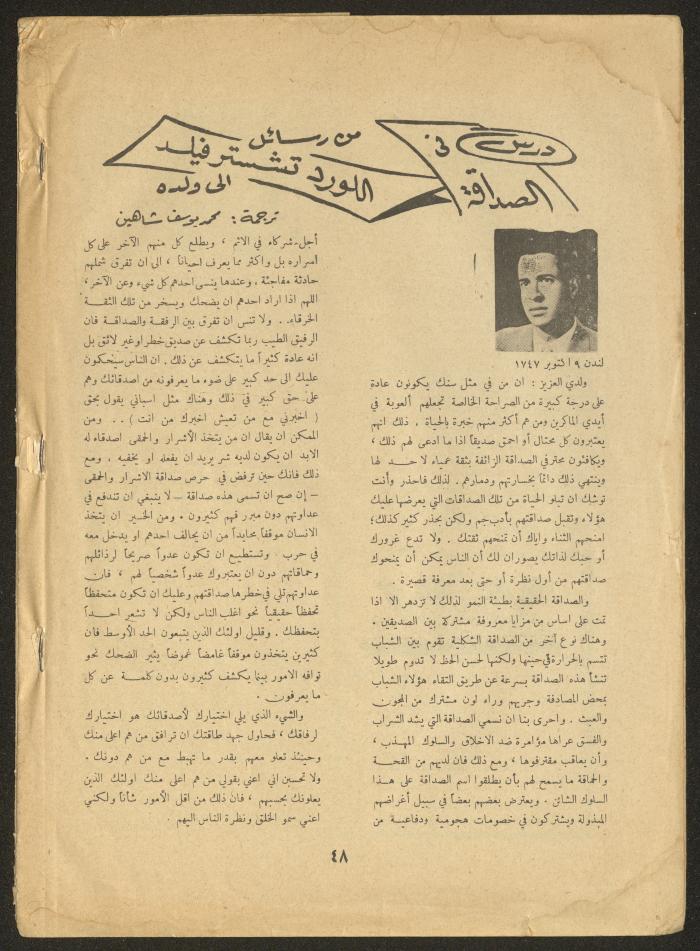 درس في
الصداقة
من رسائل
اللورد تشسترفيلد
الى ولده
ترجمة : محمد يوسف شاهين
لندن ٩ اكتوبر ١٧٤٧
ولدي العزيز : ان من في مثل سنك يكونون عادة
على درجة كبيرة من الصراحة الخالصة تجعلهم ألعوبة في
أيدي الماكرين ومن هم أكثر منهم خبرة بالحياة . ذلك انهم
يعتبرون كل محتال أو احمق صديقاً اذا ما ادعى لهم ذلك ،
ويكافئون محترفي الصداقة الزائفة بثقة عمياء لا حد لها
وينتهي ذلك دائماً بخسارتهم ودمارهم . لذلك فاحذر وأنت
توشك ان تبلو الحياة من تلك الصداقات التي يعرضها عليك
هؤلاء وتقبل صداقتهم بأدب جم ولكن بحذر كثير كذلك ؛
امنحهم الثناء واياك أن تمنحهم ثقتك . ولا تدع غرورك
أو حبك لذاتك يصوران لك أن الناس يمكن أن يمنحوك
صداقتهم من أول نظرة أو حتى بعد معرفة قصيرة .
والصداقة الحقيقية بطيئة النمو لذلك لا تزدهر الا اذا
تمت على اساس من مزايا معروفة مشتركة بين الصديقين .
وهناك نوع آخر من الصداقة الشكلية تقوم بين الشباب
تتسم بالحرارة في حينها ولكنها لحسن الحظ لا تدوم طويلا
تنشأ هذه الصداقة بسرعة عن طريق التقاء هؤلاء الشباب
بمحض المصادفة وجريهم وراء لون مشترك من المجون
والعبث . واحرى بنا ان نسمي الصداقة التي يشد الشراب
والفسق عراها مؤامرة ضد الاخلاق والسلوك المهذب ،
وأن يعاقب مقترفوها ، ومع ذلك فان لديهم من القحة
والحماقة ما يسمح لهم بأن يطلقوا اسم الصداقة على هذا
السلوك الشائن . ويعترض بعضهم بعضاً في سبيل أغراضهم
المبذولة ويشتركون في خصومات هجومية ودفاعية من
أجل شركاء في الاثم ، ويطلع كل منهم الآخر على كل
اسراره بل واكثر مما يعرف احياناً ، الى ان تفرق شملهم
حادثة مفاجئة ، وعندها ينسى احدهم كل شيء وعن الآخر ،
اللهم اذا اراد احدهم ان يضحك ويسخر من تلك الثقة
الخرقاء . . ولا تنس ان تفرق بين الرفقة والصداقة فان
الرفيق الطيب ربما تكشف عن صديق خطر او غير لائق بل
انه عادة كثيراً ما يتكشف عن ذلك . ان الناس سيحكون
عليك الى حد كبير على ضوء ما يعرفونه من اصدقائك وهم
على حق كبير في ذلك وهناك مثل اسباني يقول بحق
( اخبرني مع من تعيش اخبرك من انت ) . . ومن
الممكن ان يقال ان من يتخذ الأشرار والحمقى اصدقاء له
لابد ان يكون لديه شر يريد ان يفعله او يخفيه . ومع
ذلك فانك حين ترفض في حرص صداقة الاشرار والحمقى
– إن صح ان تسمى هذه صداقة – لا ينبغي ان تندفع في
عداوتهم دون مبرر فهم كثيرون . ومن الخير ان يتخذ
الانسان موقفاً محايداً من ان يحالف احدهم او يدخل معه
في حرب . وتستطيع ان تكون عدواً صريحاً لرذائلهم
وحماقاتهم دون ان يعتبروك عدواً شخصياً لهم ، فان
عداوتهم تلي في خطرها صداقتهم وعليك ان تكون متحفظاً
تحفظاً حقيقياً نحو اغلب الناس ولكن لا تشعر احداً
بتحفظك . وقليل اولئك الذين يتبعون الحد الأوسط فان
كثيرين يتخذون موقفاً غامضاً غموضاً يثير الضحك نحو
توافه الامور بينما يكشف كثيرون بدون كلمة عن كل
ما يعرفون .
والشيء الذي يلي اختيارك لأصدقائك هو اختيارك
لرفاقك ، فحاول جهد طاقتك ان ترافق من هم اعلى منك
وحينئذ تعلو معهم بقدر ما تهبط مع من هم دونك .
ولا تحسبن اني اعني بقولي من هم اعلى منك اولئك الذين
يعلونك بحسبهم ، فان ذلك من اقل الأمور شأناً ولكني
اعني سمو الخلق ونظرة الناس اليهم .
٤٨